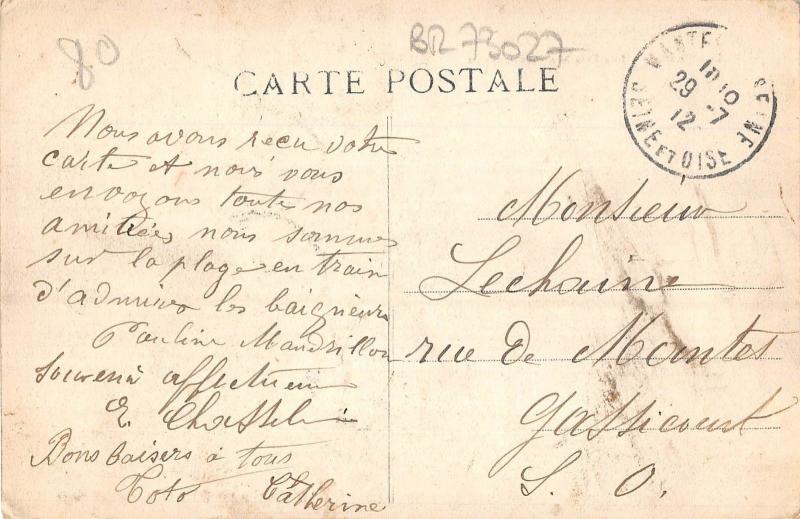 80
BR73027
CARTE POSTALE
SEINE
SEINE ET OISE
29 -7
12
Nous avons reçu votre
carte et nous vous
envoyons toutes nos
amitiées, nous sommes
sur la plage en train
d'admirer les baigneurs
Pauline Mandrillon
Souvenir affectueux
E.
Bons baisers à tous
Toto Catherine
Monsieur
Lechaune
rue de Mantes
Gassicourt
S. O.